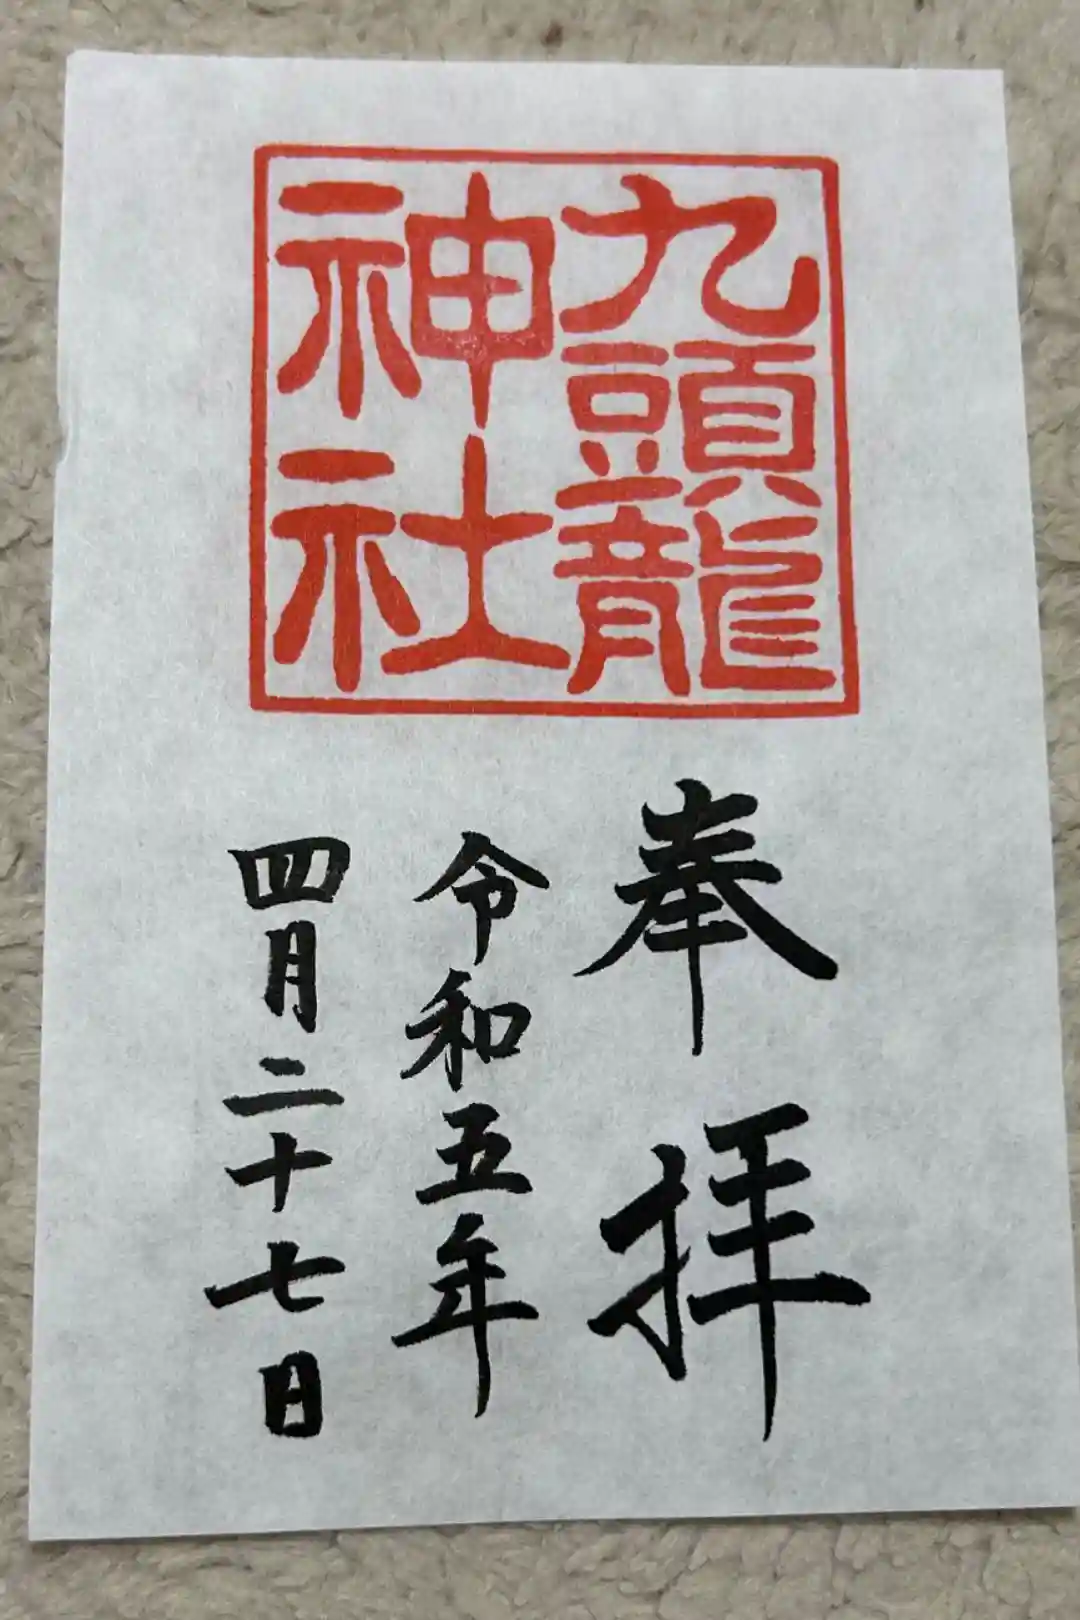 九頭龍
神社
奉拝
令和五年
四月二十七日